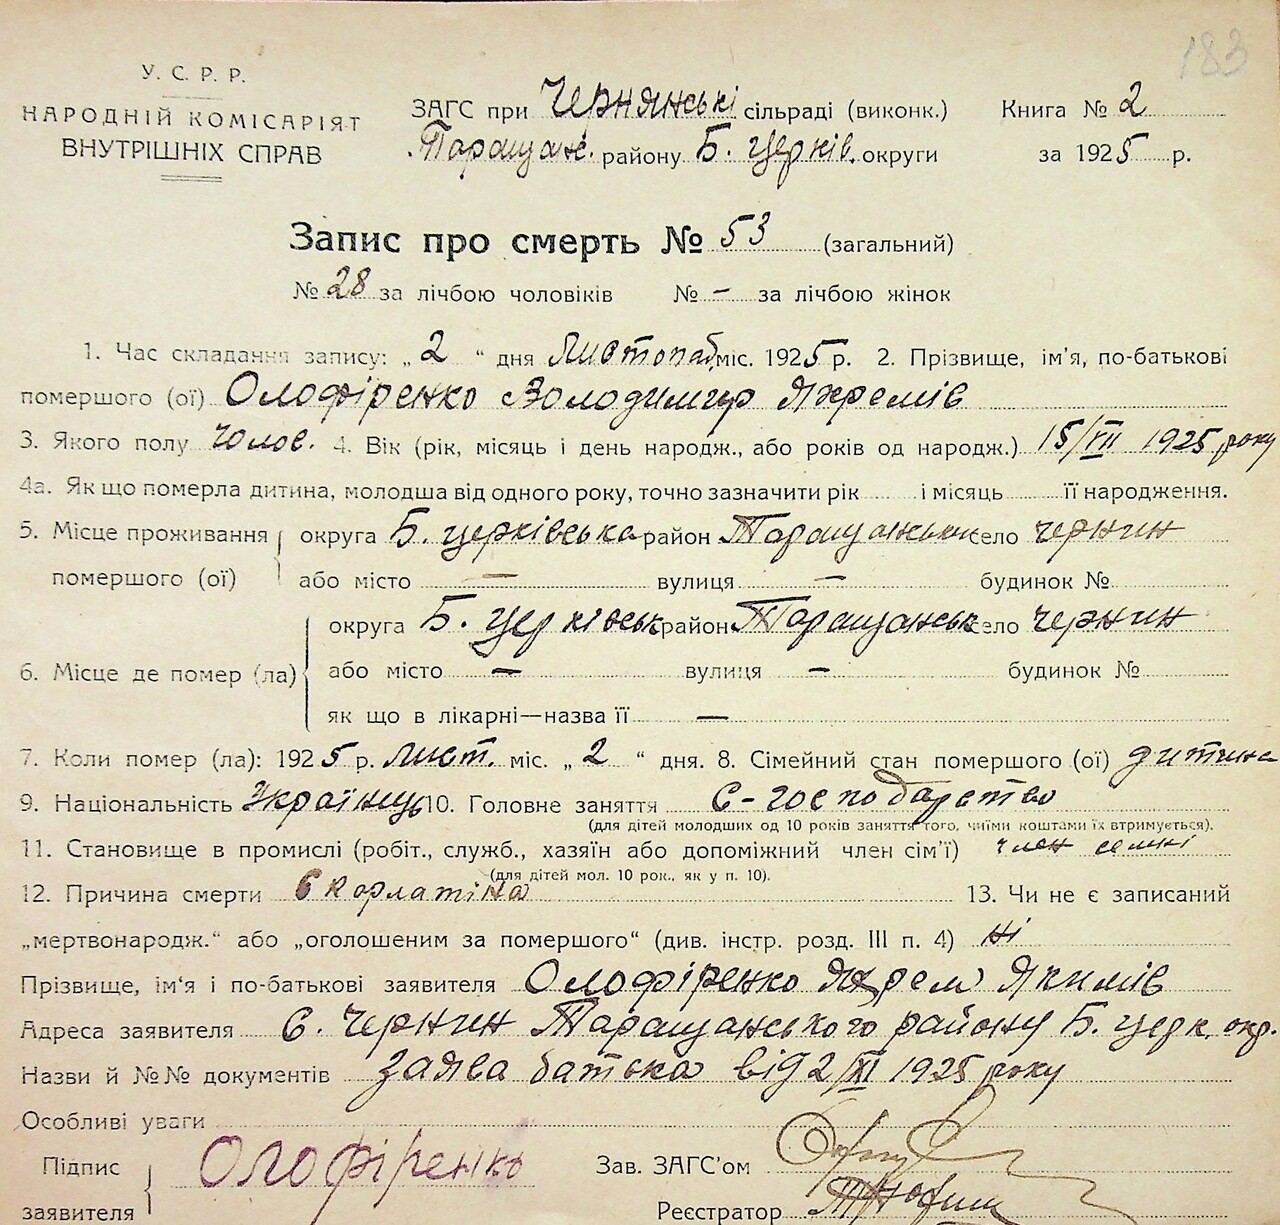 183
У. С. Р. Р.
НАРОДНІЙ КОМІСАРІЯТ
ВНУТРІШНІХ СПРАВ
ЗАГС при Чернянські сільраді (виконк.)
Таращан. району Б. Церків. округи
Книга № 2
за 1925 р.
Запис про смерть № 53 (загальний)
№ 28 за лічбою чоловіків № – за лічбою жінок
1. Час складання запису: „ 2 “ дня Листопад міс. 1925 р. 2. Прізвище, ім’я, по-батькові
помершого (ої) Олофіренко Володимир Яхремів
3. Якого полу Чолов. 4. Вік (рік, місяць і день народж., або років од народж.) 15/VII 1925 року
4а. Як що померла дитина, молодша від одного року, точно зазначити рік і місяць її народження.
5. Місце проживання округа Б. Церківська район Таращанськ село Чернин
помершого (ої) або місто — вулиця — будинок №
округа Б. Церківськ район Таращанськ село Чернин
6. Місце де помер (ла) або місто — вулиця – будинок №
як що в лікарні—назва її —
7. Коли помер (ла): 1925 р. лист. міс. „ 2 “ дня. 8. Сімейний стан помершого (ої) дитина
9. Національність Українець 10. Головне заняття С-господарство
(для дітей молодших од 10 років заняття того, чиїми коштами їх втримується).
11. Становище в промислі (робіт., служб., хазяїн або допоміжний член сім’ї) член семні
(для дітей мол. 10 рок., як у п. 10).
12. Причина смерти Скорлатіна 13. Чи не є записаний
„мертвонародж.“ або „оголошеним за помершого“ (див. інстр. розд. III п. 4) ні
Прізвище, ім‘я і по-батькові заявителя Олофіренко Яхрем Якимів
Адреса заявителя С. Чернин Таращанського району Б. Церк. окр.
Назви й №№ документів заява батька від 2/XI 1925 року
Особливі уваги
Підпис Олофіренко Зав. ЗАГС’ом
заявителя Реєстратор